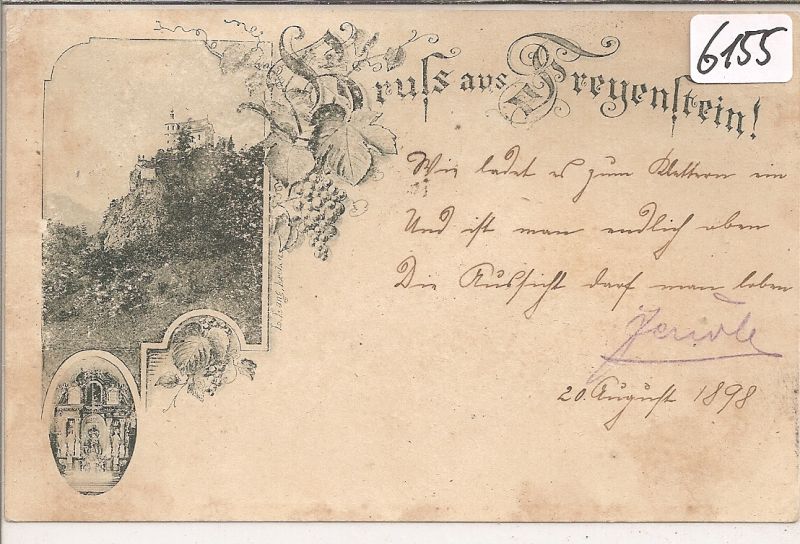 6155
Gruss aus Freyenstein!
Wie ladet es zum Klettern ein
Und ist man endlich oben
Die Aussicht darf man loben
20. August 1898